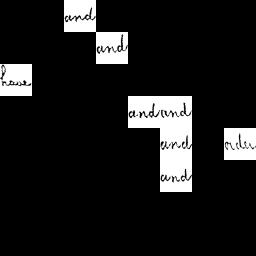 and
and
have
and and
and order
and